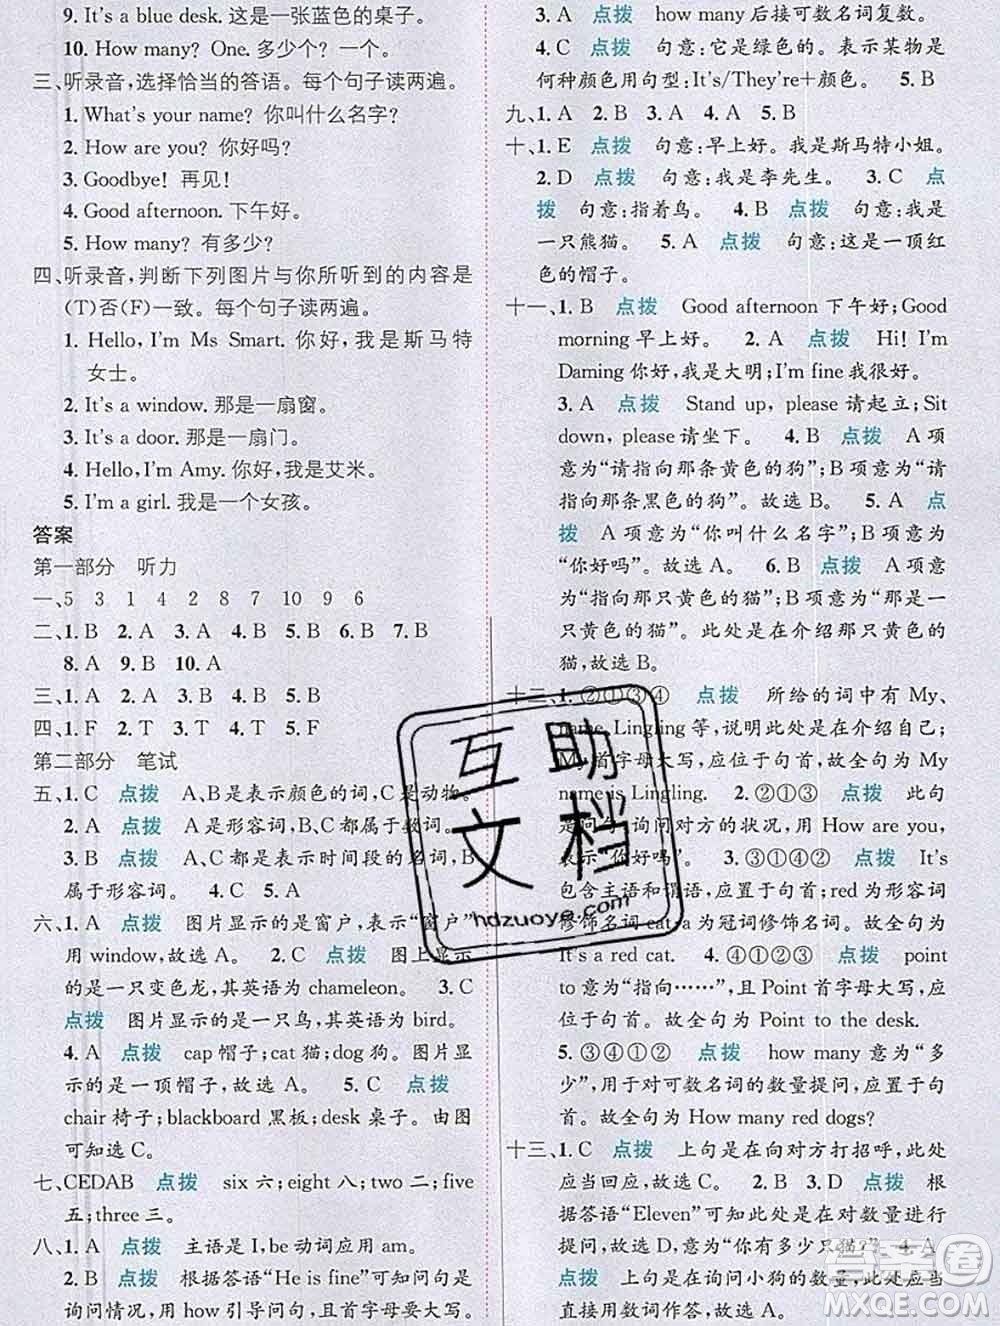 9. It's a blue desk. 这是一张蓝色的桌子。
10. How many? One. 多少个？一个。
三、听录音,选择恰当的答语。每个句子读两遍。
1. What's your name? 你叫什么名字?
2. How are you? 你好吗?
3. Goodbye! 再见!
4. Good afternoon. 下午好。
5. How many? 有多少?
四、听录音,判断下列图片与你所听到的内容是
(T)否(F)一致。每个句子读两遍。
1. Hello, I'm Ms Smart. 你好,我是斯马特
女士。
2. It's a window. 那是一扇窗。
3. It's a door. 那是一扇门。
4. Hello, I'm Amy. 你好,我是艾米。
5. I'm a girl. 我是一个女孩。
答案
第一部分 听力
一、5 3 1 4 2 8 7 10 9 6
二、1. B 2. A 3. A 4. B 5. B 6. B 7. B
8. A 9. B 10. A
三、1. B 2. A 3. A 4. B 5. B
四、1. F 2. T 3. T 4. T 5. F
第二部分 笔试
五、1. C 点拨 A、B是表示颜色的词,C是动物。
2. A 点拨 A是形容词,B、C都属于数词。
3. B 点拨 A、C都是表示时间段的名词,B
属于形容词。 4. C 5. A
六、1. A 点拨 图片显示的是窗户,表示“窗户”
用 window,故选 A。 2. C 点拨 图上显示
的是一只变色龙,其英语为 chameleon. 3. C
点拨 图片显示的是一只鸟,其英语为 bird.
4. A 点拨 cap 帽子;cat 猫;dog 狗。图片显
示的是一顶帽子,故选 A。 5. C 点拨
chair 椅子;blackboard 黑板;desk 桌子。由图
可知选 C。
七、CEDAB 点拨 six 六;eight 八;two 二;five
五;three 三。
八、1. A 点拨 主语是 I,be 动词应用 am。
2. B 点拨 根据答语“He is fine”可知问句是
询问情况,用 how 引导问句,且首字母要大写。
3. A 点拨 how many 后接可数名词复数。
4. C 点拨 句意:它是绿色的。表示某物是
何种颜色用句型:It's/They're+颜色。 5. B
九、1. A 2. B 3. A 4. A 5. B
十、1. E 点拨 句意:早上好。我是斯马特小姐。
2. D 点拨 句意:我是李先生。 3. C 点
拨 句意:指着鸟。 4. B 点拨 句意:我是
一只熊猫。 5. A 点拨 句意:这是一顶红
色的帽子。
十一、1. B 点拨 Good afternoon 下午好;Good
morning 早上好。 2. A 点拨 Hi! I'm
Daming 你好,我是大明;I'm fine 我很好。
3. A 点拨 Stand up, please 请起立;Sit
down, please 请坐下。 4. B 点拨 A 项
意为“请指向那条黄色的狗”;B 项意为“请
指向那条黑色的狗”。故选 B。 5. A 点
拨 A 项意为“你叫什么名字”;B 项意为
“你好吗”。故选 A。 6. B 点拨 A 项
意为“指向那只黄色的猫”;B 项意为“那是一
只黄色的猫”。此处是在介绍那只黄色的
猫,故选 B。
十二、1. ②①③④ 点拨 所给的词中有 My,
name, Lingling 等,说明此处是在介绍自己;
My 首字母大写,应位于句首。故全句为 My
name is Lingling. 2. ①②③ 点拨 此句
是问句,询问对方的状况,用 How are you,
表示“你好吗”。 3. ③①④② 点拨 It's
包含主语和谓语,应放在句首;red 为形容词
修饰名词 cat,a 为冠词修饰名词。故全句为
It's a red cat. 4. ④③①② 点拨 point
to 意为“指向……”,且 Point 首字母大写,应
位于句首。故全句为 Point to the desk.
5. ③④①② 点拨 how many 意为“多
少”,用于对可数名词的数量提问,应置于句
首。故全句为 How many red dogs?
十三、1. C 点拨 上句是在向对方打招呼,此处
应当回应,故选 C。 2. B 3. D 点拨 根
据答语“Eleven”可知此处应当对数量进行
提问,故选 D,意为“你有多少只猫?” 4. A
点拨 此处是在询问小狗的数量,此处应当
直接用数词作答,故选 A。
互助
文档
hdzuoye.com
答案圈
MXQE.COM